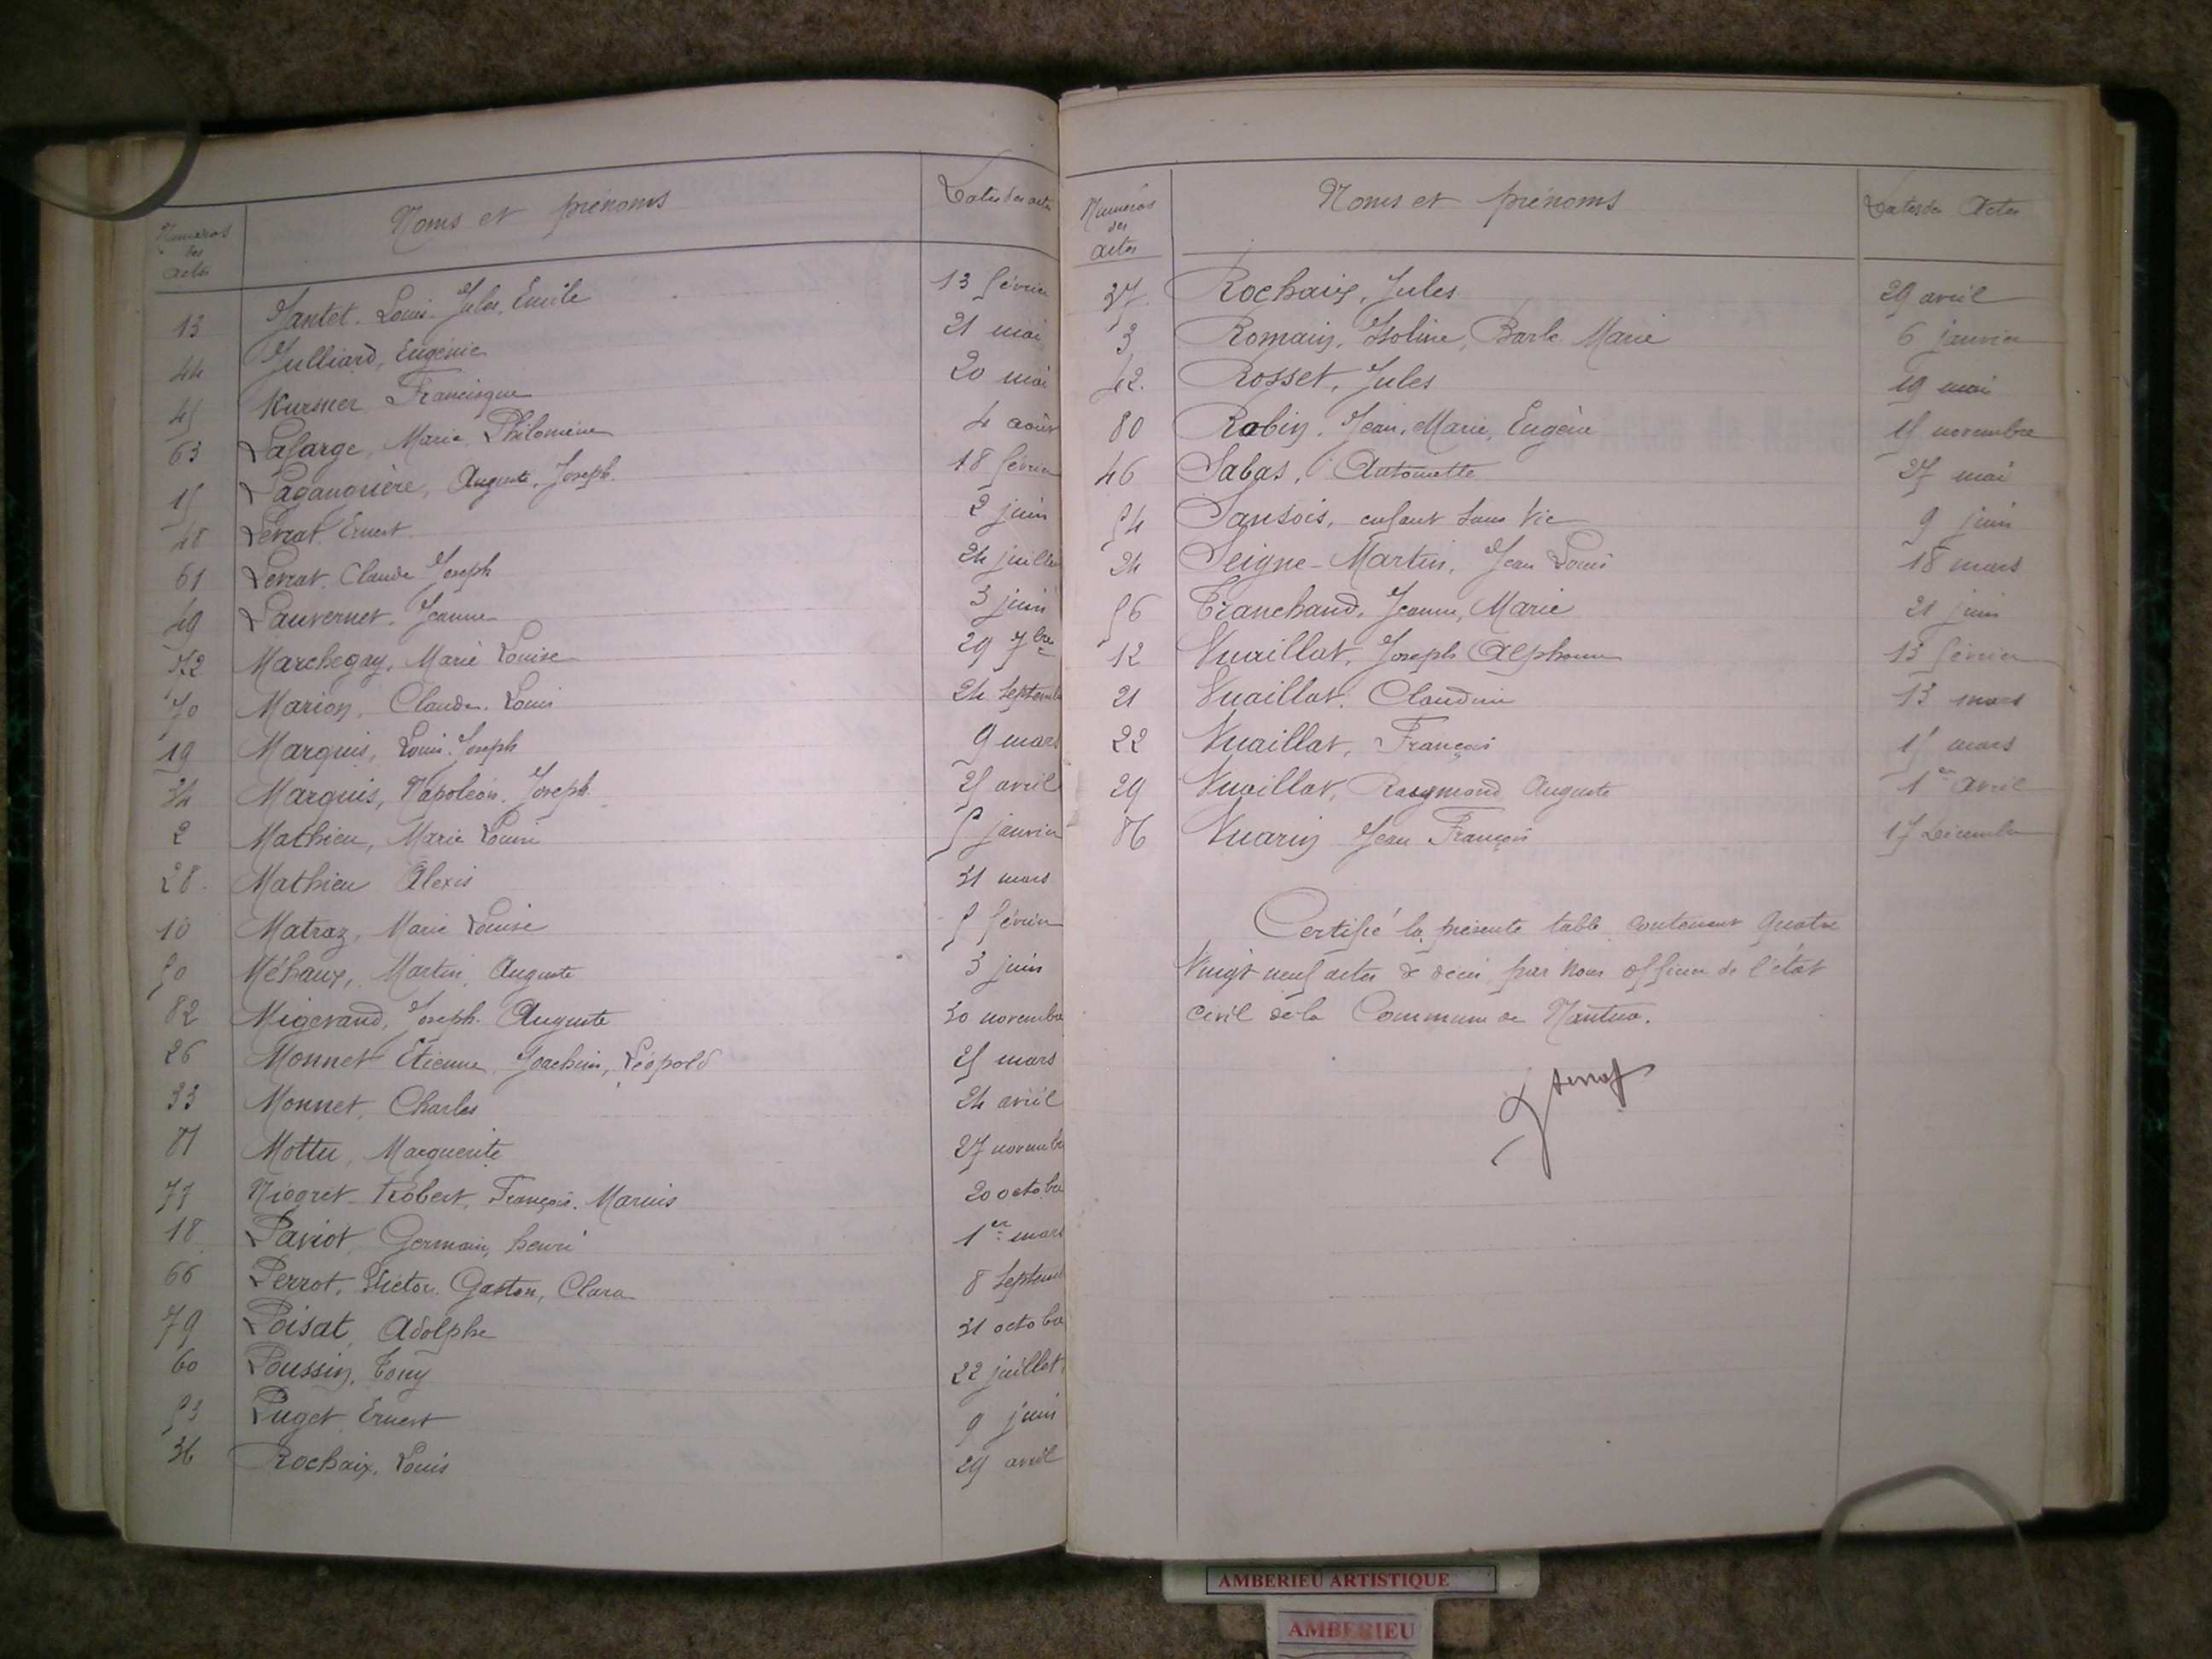 Numéros des actes Noms et prénoms Dates des actes
13 Jantet. Louis. Jules, Emile 13 février
44 Julliard, Eugénie 21 mai
45 Kursner Francisque 20 mai
63 Lafarge, Marie, Philomène 4 août
15 Auguste, Joseph. 18 février
48 Levrat Ernest 2 juin
61 Levrat. Claude Joseph 24 juillet
49 Lauvernet. Jeanne 3 juin
72 Marchegay, Marie Louise 29 7bre
70 Marion, Claude. Louis 24 septembre
19 Marquis, Louis. Joseph 9 mars
34 Marquis, Napoléon. Joseph. 25 avril
2 Mathieu, Marie Louise 5 janvier
28. Mathieu Alexis 31 mars
10 Matraz, Marie Louise 5 février
50 Méhaux, Martin, Auguste 3 juin
82 Migerand, Joseph. Auguste 30 novembre
26 Monnet Etienne, Joachim, Léopold 25 mars
33 Monnet, Charles 24 avril
81 Mottu, Marguerite 27 novembre
77 Niogret Robert, François. Marius 20 octobre
18 Paviot, Germain, henri 1er mars
66 Perrot, Victor. Gaston, Clara 8 septembre
79 Poisat, Adolphe 31 octobre
60 Poussin, Tony 22 juillet
53 Puget Ernest 9 juin
36 Rochaix, Louis 29 avril
Numéros des actes Noms et prénoms Dates des Actes
37. Rochaix, Jules 29 avril
3 Romain, Isoline, Barbe Marie 6 janvier
42. Rosset, Jules 19 mai
80 Robin, Jean, Marie, Eugène 15 novembre
46 Sabas, Antoinette 27 mai
54 Sansois, enfant sans vie 9 juin
24 Seigne-Martin, Jean Louis 18 mars
56 Tranchand, Jeanne, Marie 21 juin
12 Vuaillat, Joseph Alphonse 13 février
21 Vuaillat, Claudine 13 mars
22 Vuaillat, François 15 mars
29 Vuaillat, Raymond Auguste 1er avril
86 Vuarin Jean François 17 Décembre
Certifié la présente table contenant quatre
Vingt neuf actes de décès par nous officier de l'état
civil de la Commune de Nantua.
AMBERIEU ARTISTIQUE
AMBERIEU